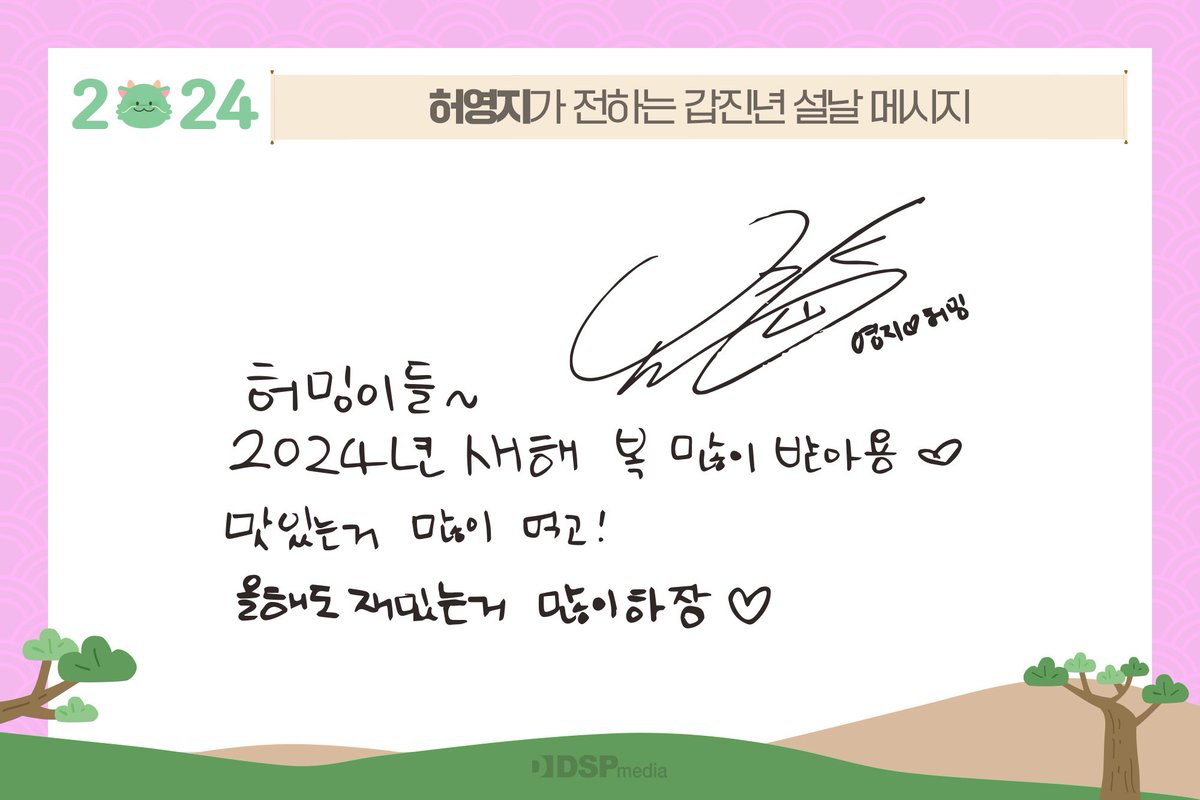 2024
허영지가 전하는 갑진년 설날 메시지
영지♡허밍
허밍이들~
2024년 새해 복 많이 받아용♡
맛있는거 많이 먹고!
올해도 재밌는거 많이하장♡
DSPmedia